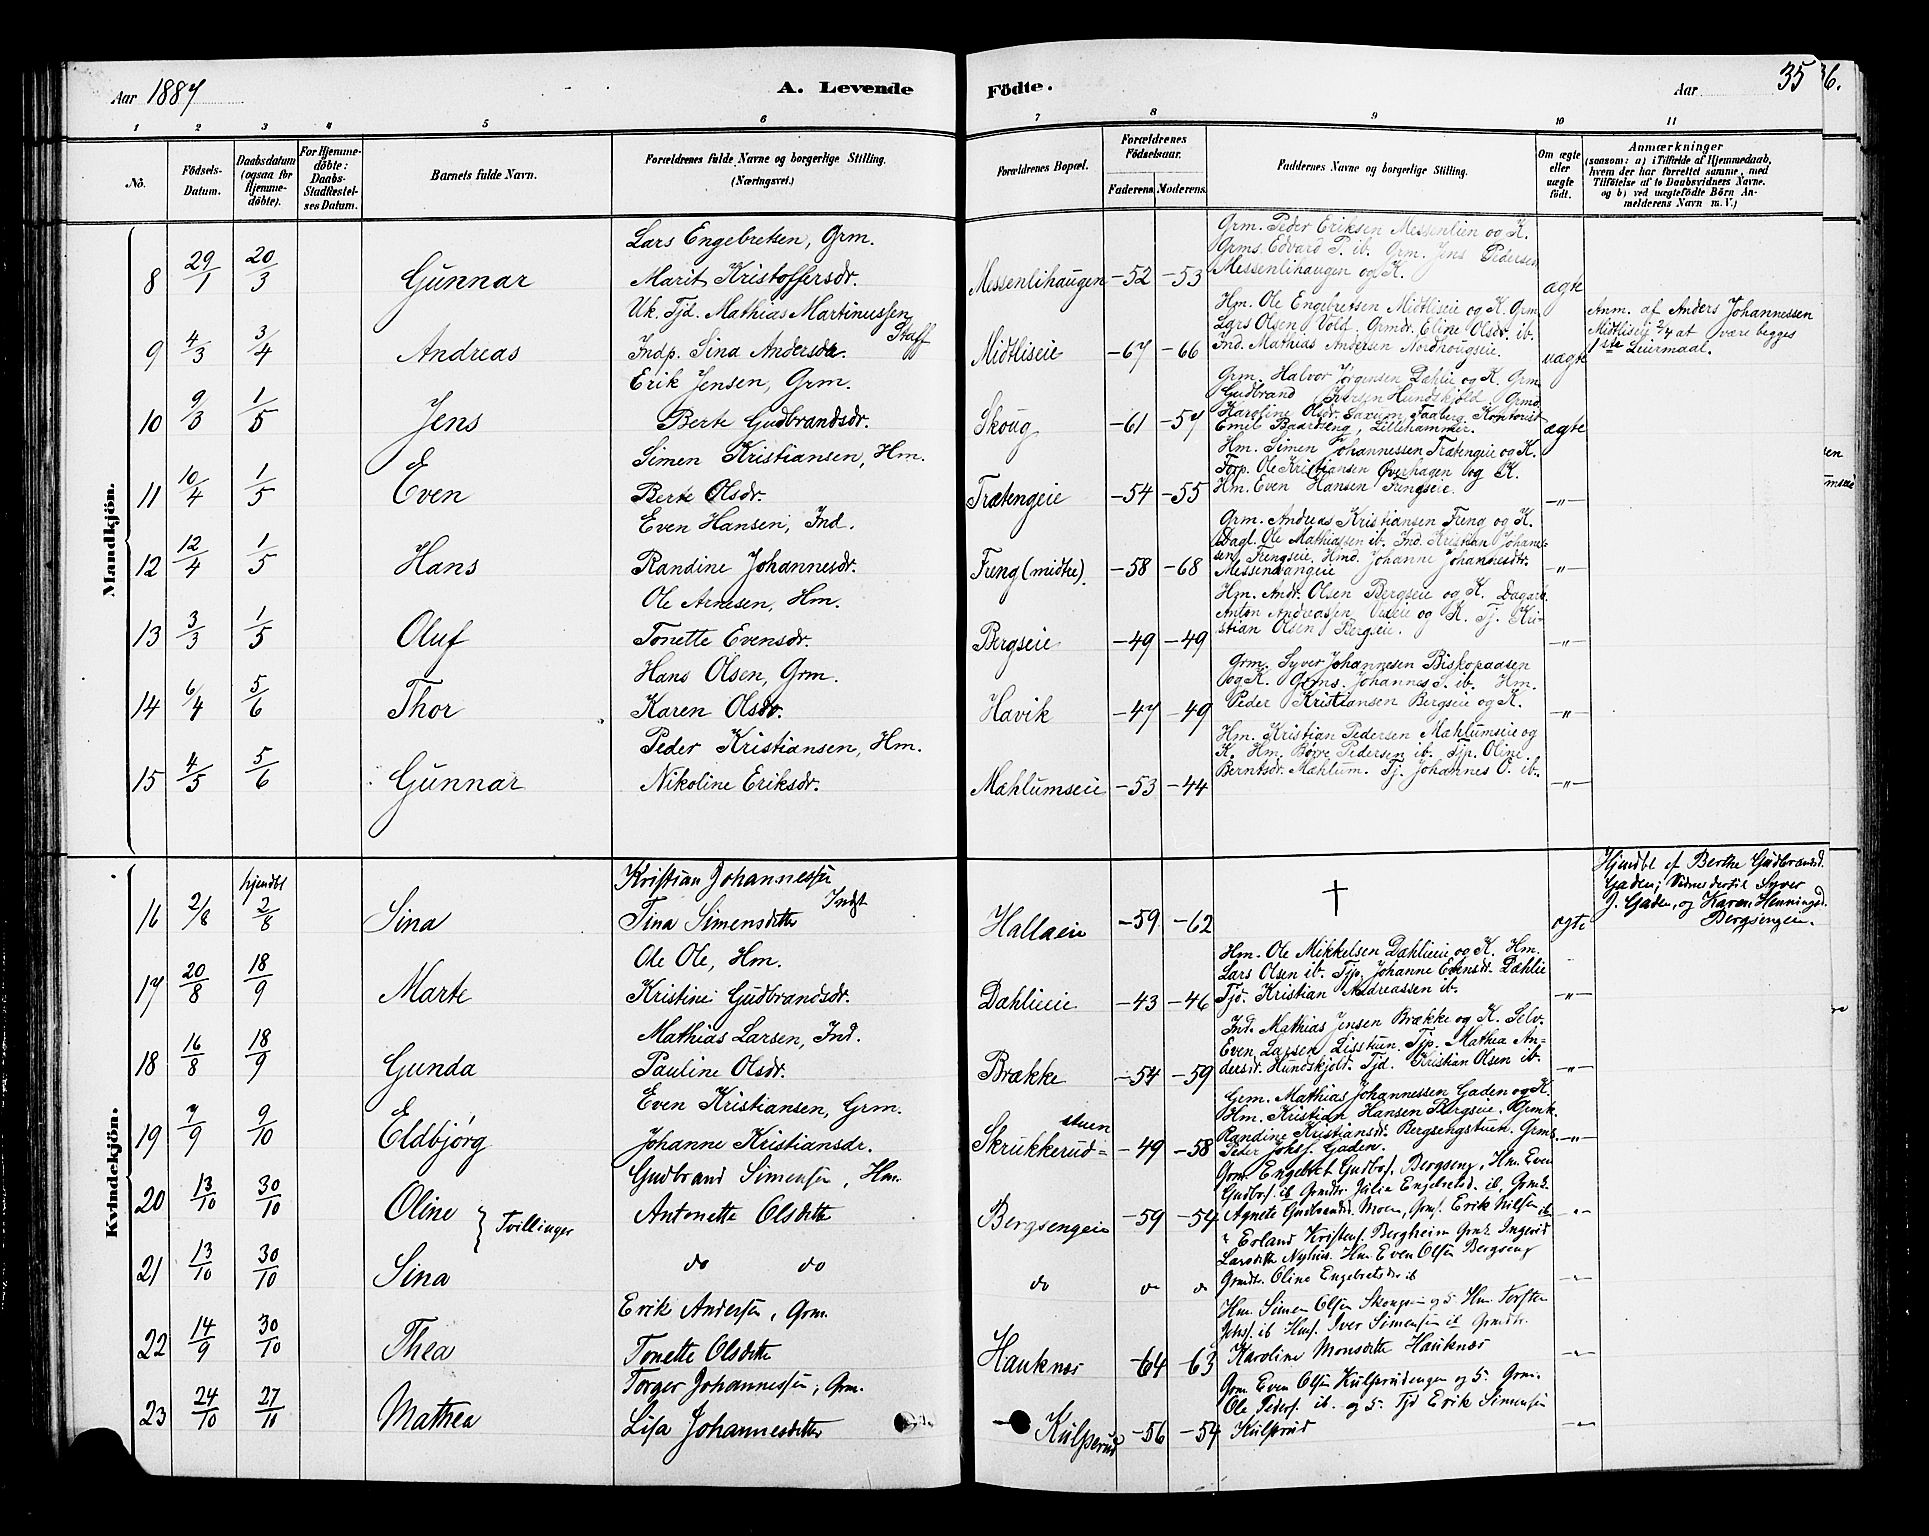 Aar 1887
A. Levende
Födte.
Aar
35
36.
1 2 3 4 5 6 7 8 9 10 11
No.
Födsels-Datum.
Daabsdatum (ogsaa for Hjemmedöbte).
For Hjemmedöbte: Daabs-Stadfæstelses Datum.
Barnets fulde Navn.
Forældrenes fulde Navne og borgerlige Stilling. (Næringsvei.)
Forældrenes Bopæl.
Forældrenes Födselsaar.
Faderens Moderens
Faddernes Navne og borgerlige Stilling.
Om ægte eller uægte födt.
Anmærkninger
(saasom: a) i Tilfælde af Hjemmedaab,
hvem der har forrettet samme, med
Tilföielse af to Daabsvidners Navne.
og b) ved uægtefödte Börn An-
melderens Navn m. V.)
Mandkjön.
8 29/1 20/3 Gunnar
Lars Engebretsen, Grm.
Marit Kristoffersdr.
Messenlihaugen -52 -53
Grm. Peder Eriksen Messenlien og K.
Grms. Edvard P. ib. Grm. Jens Pedersen
Messenlihaugen og K.
ægte
9 4/3 3/4 Andreas
Uk. Tjd. Mathias Martinussen
Staff
Indp. Sina Andersdr.
Midtliseie -67 -66
Hm. Ole Engebretsen Midtliseie og K. Grm.
Lars Olsen Vold, Grmdr. Eline Olsdr. ib.
Ind. Mathias Andersen Nordhougseie.
uægte
Anm. af Anders Johannessen
Midtliseie 2/4 at være begges
1ste Leiermaal.
10 9/3 1/5 Jens
Erik Jensen, Grm.
Berte Gudbrandsdr.
Skoug -61 -57
Grm. Halvor Jørgensen Dahlie og K. Grm.
Gudbrand Iversen Hundskjold Grmd.
Karoline Olsdr. Saxum, Faaberg, Kontorist
Emil Baardseng, Lillehammer.
ægte
11 10/4 1/5 Even
Simen Kristiansen, Hm.
Berte Olsdr.
Trætengeie -54 -55
Hm. Simen Johannessen Trætengeie og K.
Torp. Ole Kristiansen Øverhagen og K.
Hm. Even Hansen Frengseie.
-"-
12 12/4 1/5 Hans
Even Hansen, Ind.
Randine Johannesdr.
Freng (midtre). -58 -68
Grm. Andreas Kristiansen Freng og K.
Dagl. Ole Mathiassen ib. Ind. Kristian Johanes-
sen Frengseie, Hmd. Johanne Johannesdtr.
Messenvangeie
-"-
13 3/3 1/5 Oluf
Ole Arnesen, Hm.
Tonette Evensdr.
Bergseie -49 -49
Hm. Andr. Olsen Bergseie og K. Dagarb.
Anton Andreassen og K. Tj. Kri-
stian Olsen Bergseie.
-"-
14 6/4 5/6 Thor
Hans Olsen, Grm.
Karen Olsdr.
Havik -47 -49
Grm. Syver Johannesen Biskopaasen
og K. Grms. Johannes S. ib. Hm.
Peder Kristiansen Bergseie og K.
-"-
15 4/5 5/6 Gunnar
Peder Kristiansen, Hm.
Nikoline Eriksdr.
Mahlumseie -53 -44
Hm. Kristian Pedersen Mahlumseie og
K. Hm. Børre Pedersen ib. Tjp. Oline
Berntsdr. Mæhlum. Tj. Johannes O. ib.
-"-
Kvindekjön.
16 2/8 hjemdbt 2/8 Sina
Kristian Johannessen
Indst
Tina Simensdatter
Hallaeie -59 -62
†
ægte
Hjemdbt af Berthe Gudbrandsd.
Gaden; Vidner dertil Syver
J. Gaden, og Karen Henningsd.
Bergsengen.
17 20/8 18/9 Marte
Ole Ole, Hm.
Kristine Gudbrandsdr.
Dahlieie -43 -46
Hm. Ole Mikkelsen Dahlieie og K. Hm.
Lars Olsen ib. Tjp. Johanne Evensdr. Dahlie
Tjd. Kristian Andreassen ib.
-"-
18 16/8 18/9 Gunda
Mathias Larsen, Ind.
Pauline Olsdr.
Brække -54 -59
Ind. Mathias Jensen Brække og K. Selv.
Even Larsen Lisstuen. Tjp. Mathea An-
dersdr. Hundskjold. Tjd. Kristian Olsen ib.
-"-
19 7/9 9/10 Eldbjørg
Even Kristiansen, Grm.
Johanne Kristiansdr.
Skrukkerud-stuen -49 -58
Grm. Mathias Johannessen Gaden og K.
Hm. Kristian Hansen Bergseie, Grmk.
Randine Kristiansdr. Bergsengstuen. Grms.
Peder Johsf. Gaden.
-"-
20 13/10 30/10 Oline
} Tvillinger
Gudbrand Simensen, Hm.
Antonette Olsdatter
Bergsengeie -59 -54
Grm. Engebret Gudbrf. Bergseng, Hm. Even
Gudbrf. ib Grmdtr. Julia Engebretsd. ib, Grmk.
Agnete Gudbrandsd. Moen, Grmf. Erik Nilsen ib
-"-
21 13/10 30/10 Sina
do do
do do do
" Erland Kristenf. Bergheim Grmk. Ingerid
Larsdatter Nyhus. Hm Even Olsen Bergseng
Grmdtr. Oline Engebretsdr ib
-"-
22 14/9 30/10 Thea
Erik Andersen, Grm.
Tonette Olsdatter
Hauknæs -64 -63
Hm. Simen Olsen Skougen og 5. Hm. Torsten
Johsf. ib Hmf. Iver Simensen ib Grmdtr.
Karoline Monsdatter Hauknæs
-"-
23 24/10 27/11 Mathea
Torger Johannessen, Grm.
Lisa Johannesdatter
Kulsperud -56 -54
Grm. Even Olsen Kulsrudengen og 5. Grm.
Ole Pedersf. ib. og 5. Tjd Erik Simensen
Kulsprud
-"-